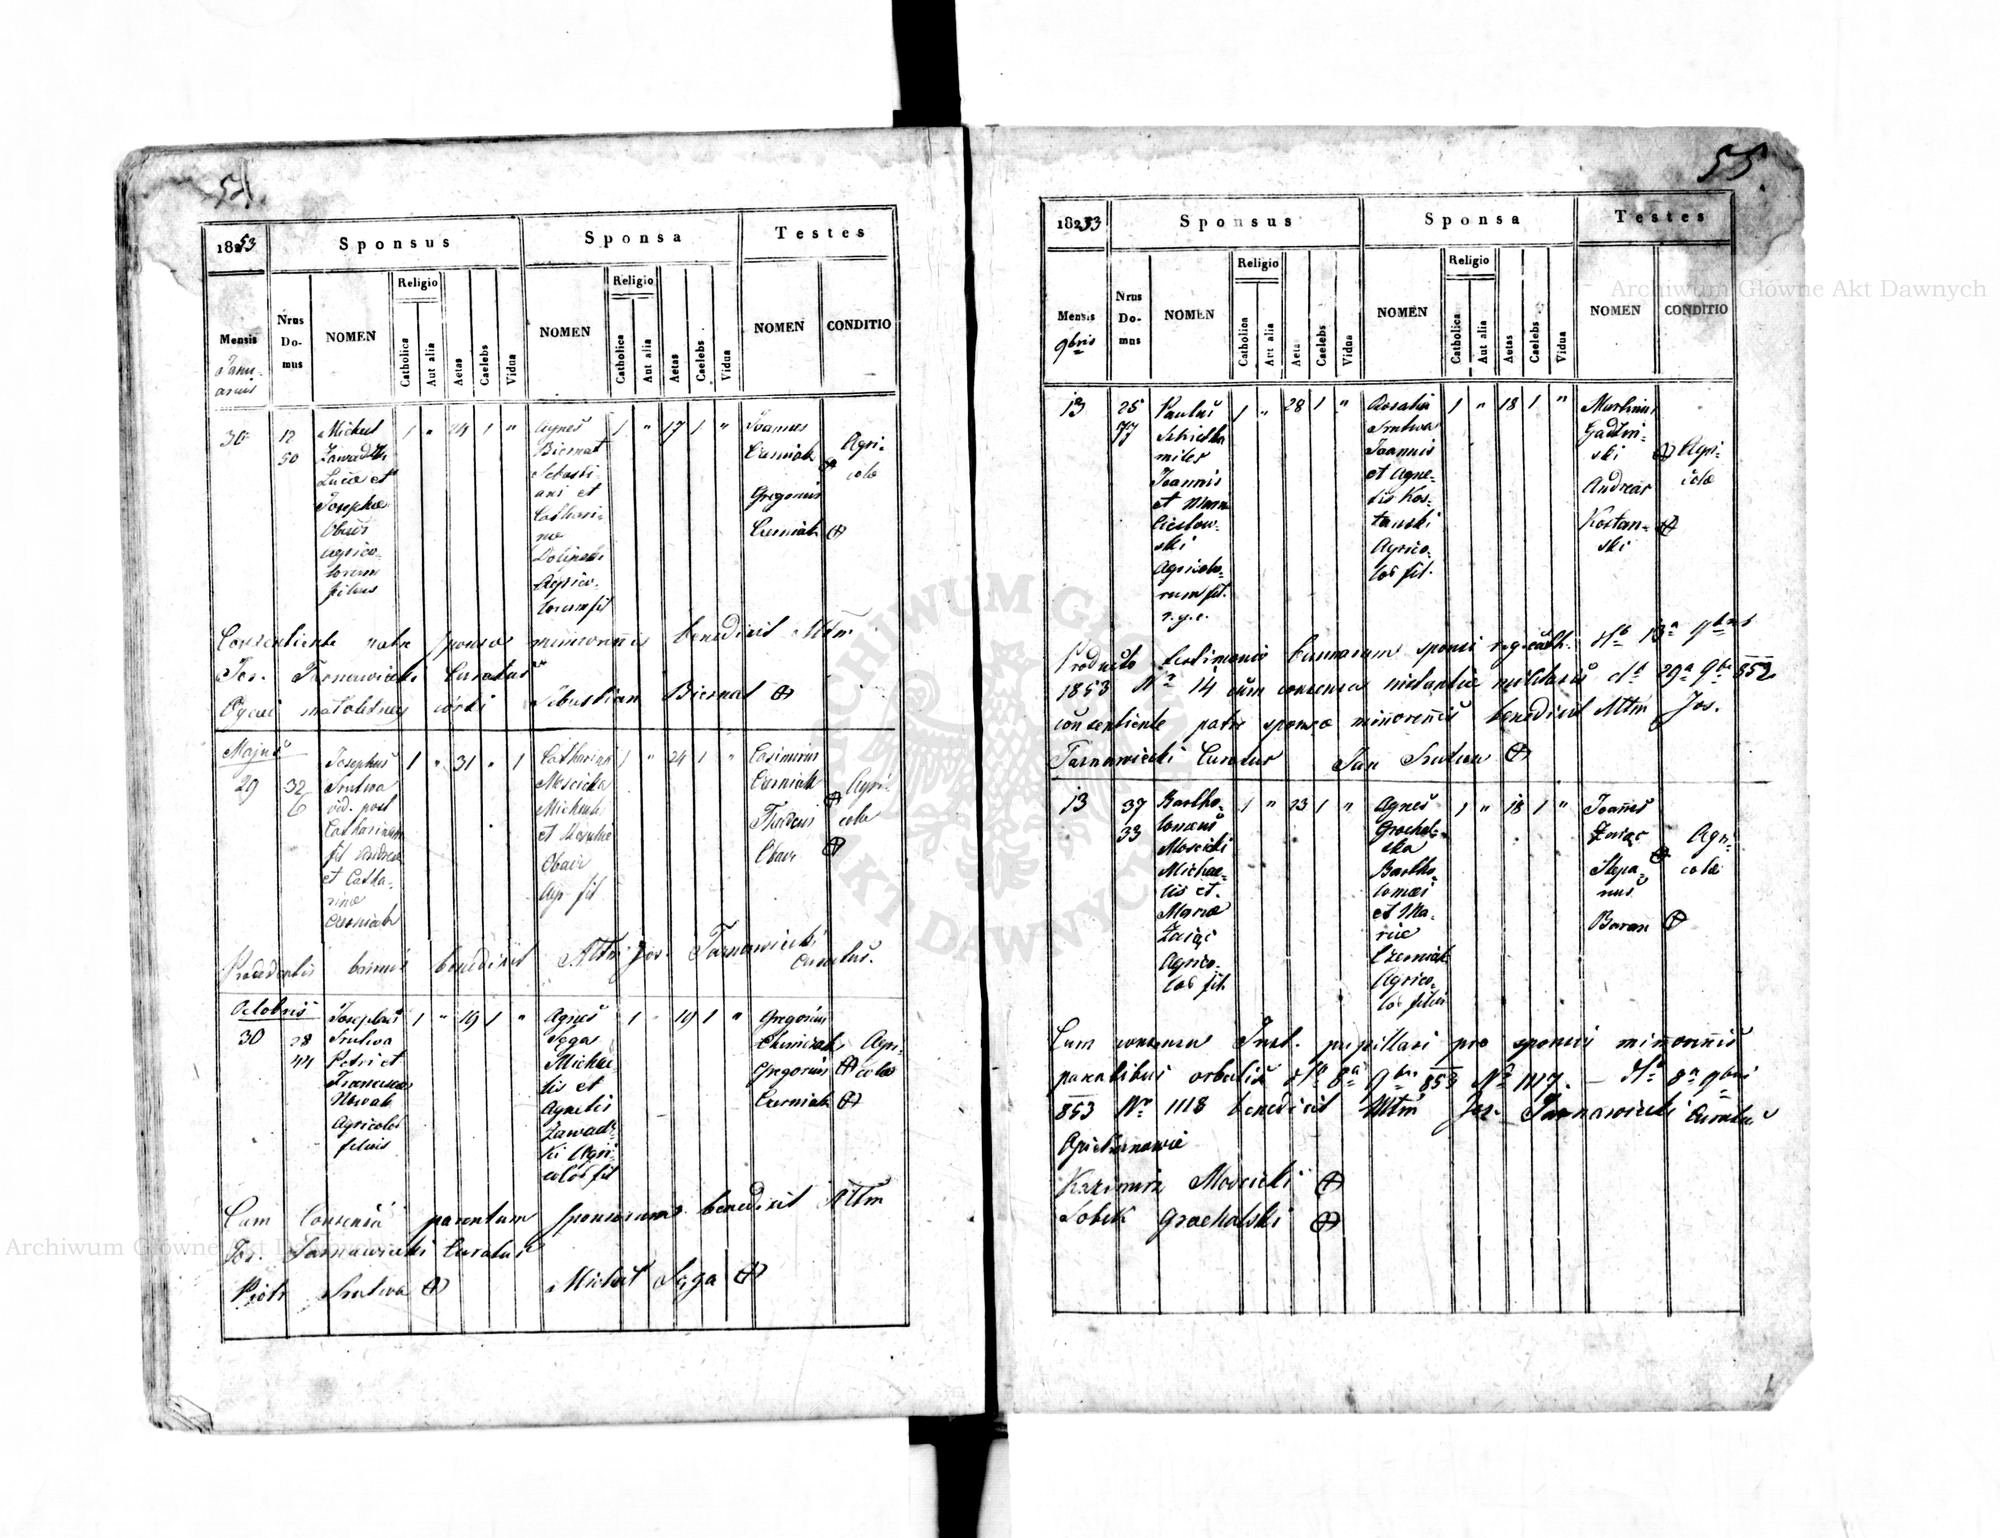 54.
1853
Sponsus
Sponsa
Testes
Mensis
Janu-
arius
Nrus
Do-
mus
NOMEN
Religio
Catholica
Aut alia
Aetas
Caelebs
Vidua
NOMEN
Religio
Catholica
Aut alia
Aetas
Caelebs
Vidua
NOMEN
CONDITIO
30
12
50
Michael
Zawadzki
Lucae et
Josephae
Obacz
agrico-
larum
filius
1 " 24 1 "
Agnes
Biernat
Sebasti-
ani et
Cathari-
nae
Agrico-
larum fil
1 " 17 1 "
Joannes
Czerniak
Gregorius
Czerniak
Agri-
colae
Consentiente patre sponsae minorennis benedixit Mttm
Jos. Tarnawiecki Curatus
Ojciec małoletniej córki Sebastian Biernat
Majus
29
32
6
Josephus
Srutwa
vid. post
Catharinam
fil Andreae
et Catha-
rinae
Czerniak
1 " 31 " 1
Catharina
Moscicka
Michaelis
Obacz
Agr fil
1 " 24 1 "
Casimirus
Czerniak
Thadeus
Obacz
Agri-
colae
benedixit Mttm Jos. Tarnawiecki
Curatus.
Octobris
30
28
44
Josephus
Srutwa
Petri et
Franciscae
Nowak
Agricolar
filius
1 " 19 1 "
Agnes
Sęga
Michae-
lis et
Agnetis
Zawadz-
ki Agri-
colar fil
1 " 19 1 "
Gregorius
Gregorius
Czerniak
Agri-
colae
Cum consensu parentum sponsorum benedixit Mttm
Jos. Tarnawiecki Curatus
Piotr Srutwa Michał Sęga
55
1853
Sponsus
Sponsa
Testes
Mensis
9bris
Nrus
Do-
mus
NOMEN
Religio
Catholica
Aut alia
Aetas
Caelebs
Vidua
NOMEN
Religio
Catholica
Aut alia
Aetas
Caelebs
Vidua
NOMEN
CONDITIO
13
25
77
Paulus
miles
Joannis
et Mariae
Cieslow-
ski
Agricola-
rum fil.
r.g.c.
1 " 28 1 "
Rosalia
Srutwa
Joannis
et Agne-
tis Kos-
tanski
Agrico-
lar fil.
1 " 18 1 "
Martinus
Andreas
Kostan-
ski
Agri-
colae
Producto testimonio bannorum sponsi r.g.cath. dto 13a 9bris
1853 No 14 cum consensu instantiae militaris dto 29a 9bris 852
consentiente patre sponsae minorennis benedixit Mttm Jos.
Tarnawiecki Curatus Jan Srutwa
13
37
33
Bartho-
lomaeus
Moscicki
Michae-
lis et
Mariae
Zaiąc
Agrico-
lar fil.
1 " 23 1 "
Agnes
Grochal-
ska
Bartho-
lomaei
et Ma-
riae
Czerniak
Agrico-
lar filia
1 " 18 1 "
Joannes
Zaiąc
Stepa-
nus
Baran
Agri-
colae
Cum consensu Inst. pupillari pro sponsis minorennis
parentibus orbatis dto 8a 9bris 853 No 1117. – dto 8a 9bris
853 No 1118 benedixit Mttm Jos. Tarnawiecki Curatus
Opiekunowie
Kazimirz Moscicki
Sobek Grochalski
Archiwum Główne Akt Dawnych
Archiwum Główne Akt Dawnych
ARCHIWUM GŁÓWNE
AKT DAWNYCH